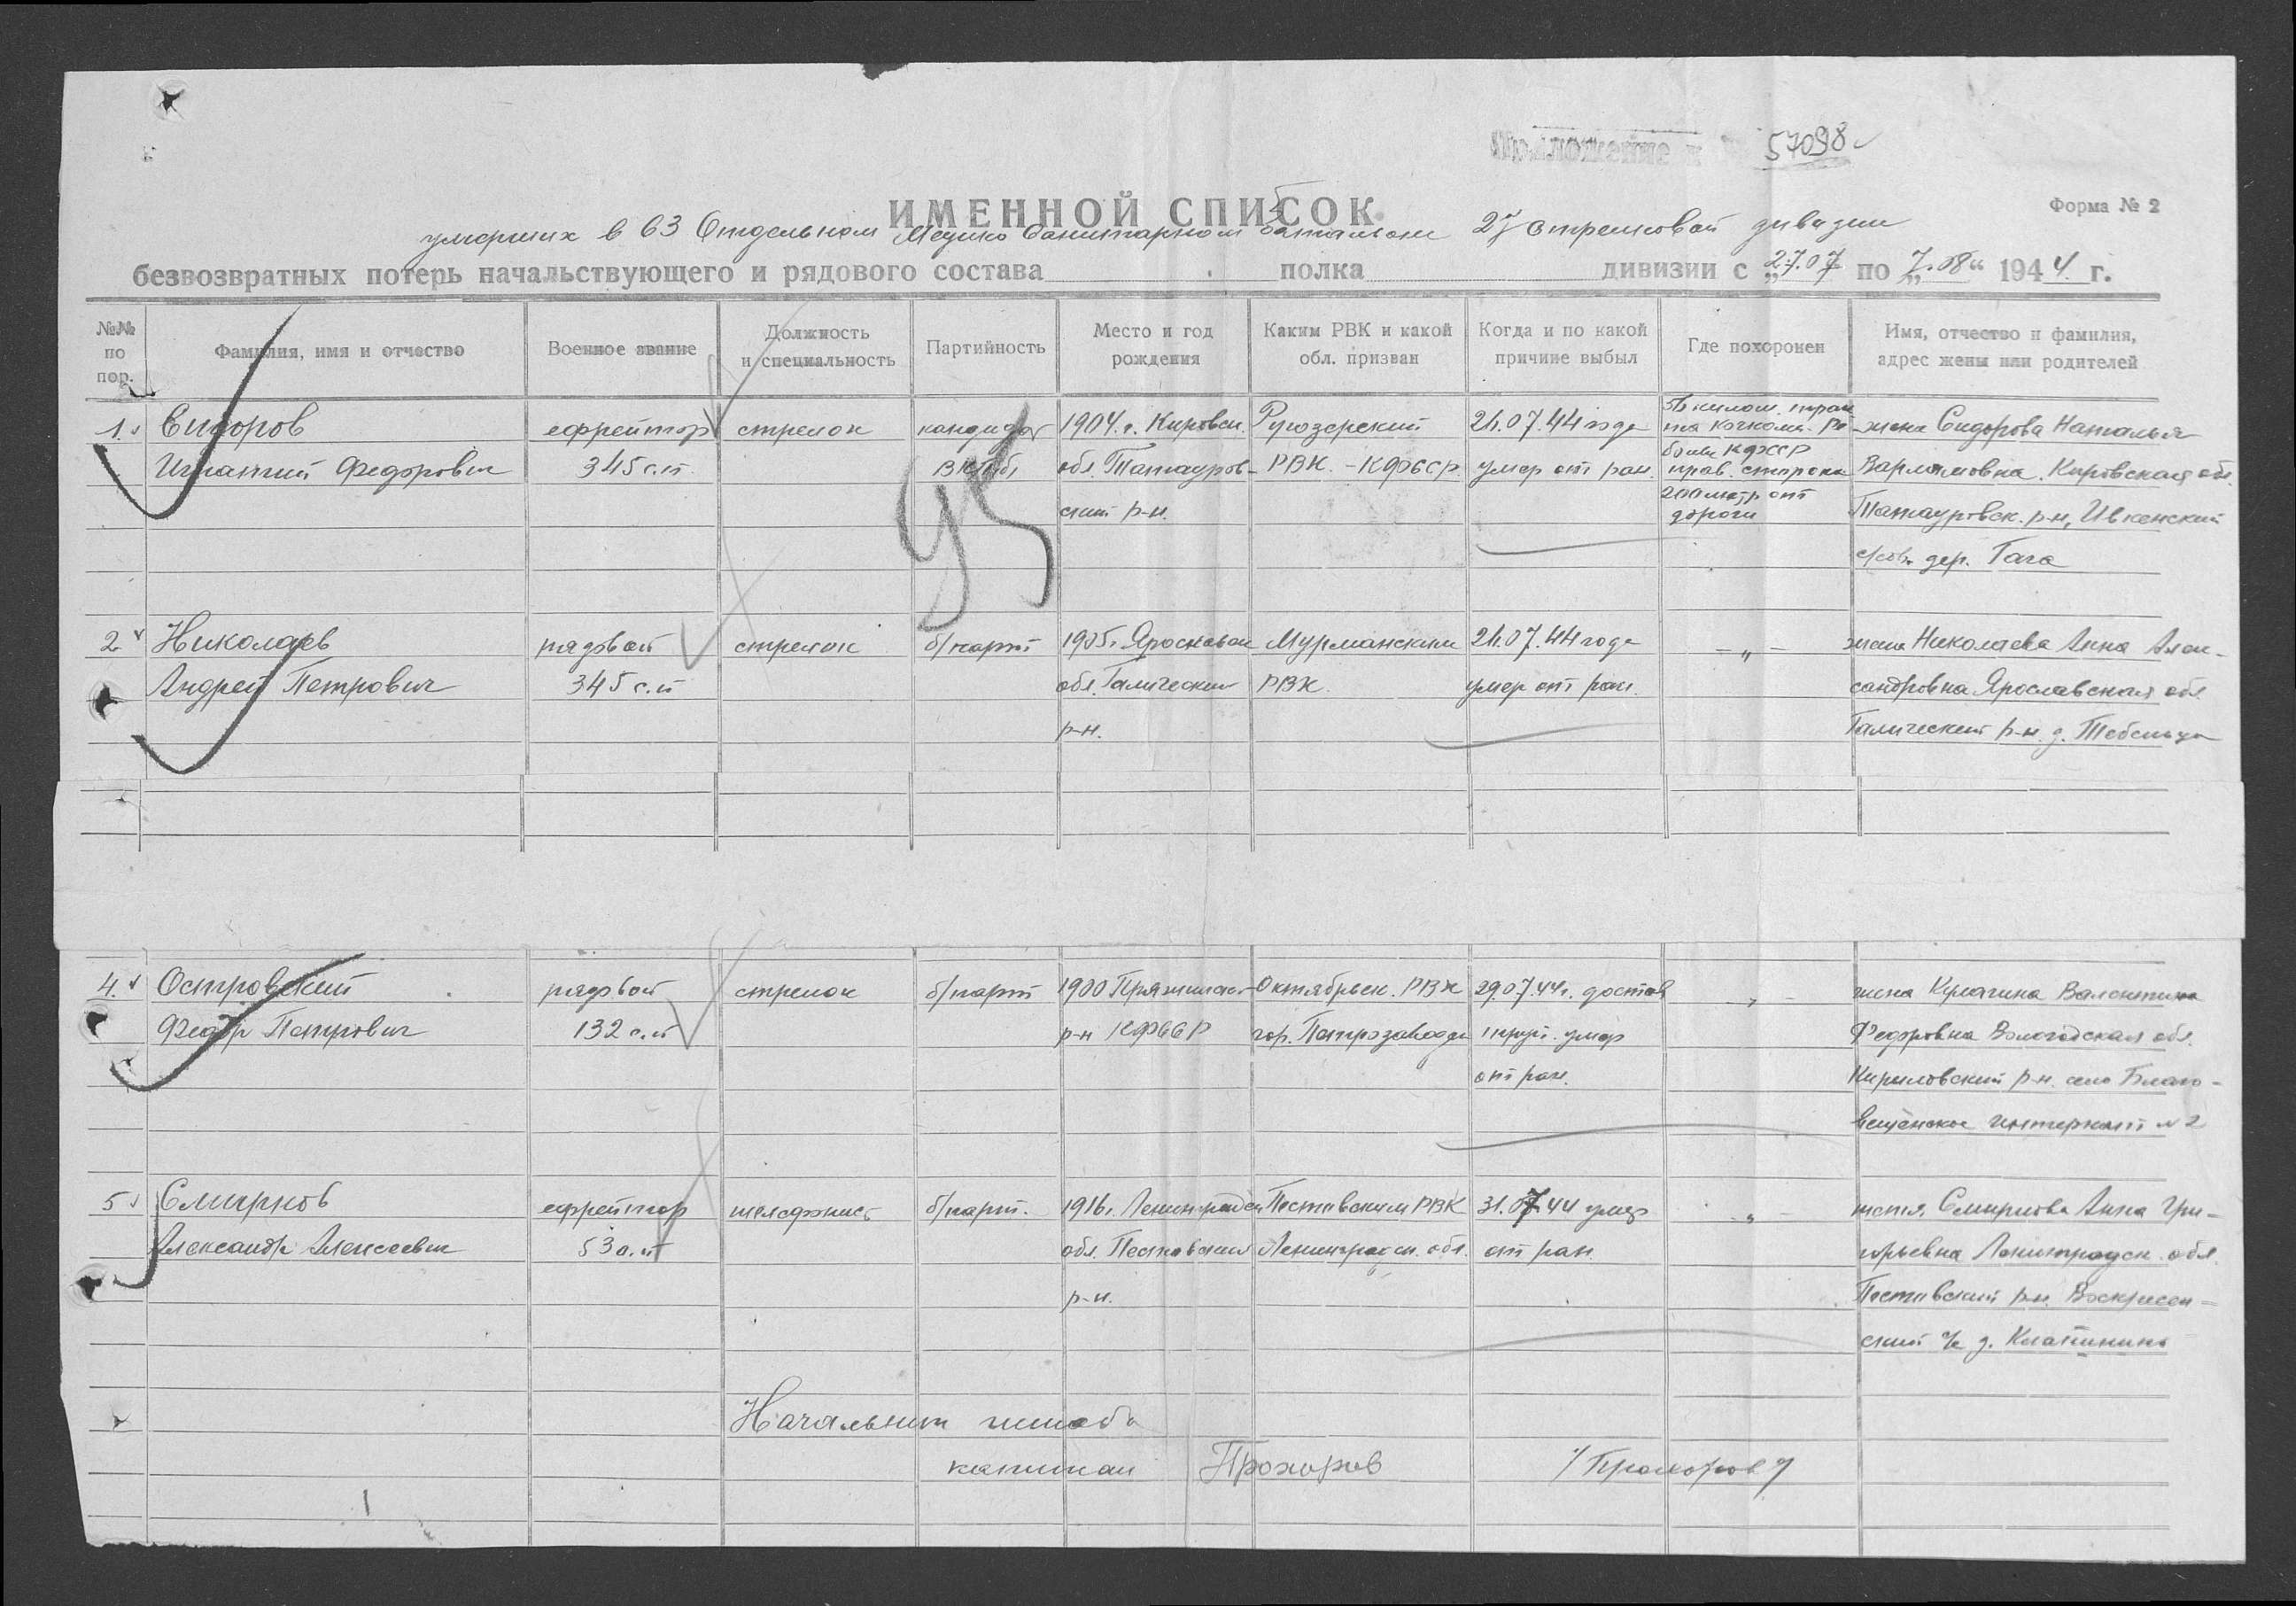 Приложение к № 57098
ИМЕННОЙ СПИСОК
Форма № 2
умерших в 63 Отдельном Медико Санитарном батальоне 27 стрелковой дивизии
безвозвратных потерь начальствующего и рядового состава полка дивизии с „27.07 по „7.08“ 1944 г.
№№ по пор.
Фамилия, имя и отчество
Военное звание
Должность и специальность
Партийность
Место и год рождения
Каким РВК и какой обл. призван
Когда и по какой причине выбыл
Где похоронен
Имя, отчество и фамилия, адрес жены или родителей
1. Сидоров ефрейтор стрелок кандидат 1904 г. Кировск. Ругозерский 24.07.44 года жена Сидорова Наталья
Игнатий Федорович 345 с.п. ВКП/б/ обл. Татауров- РВК - КФССР умер от ран. прав. сторона Варламовна. Кировская обл.
ский р-н. 200 метр от дороги Татауровск. р-н, Ивкенский
с/сов. дер. Гага
2 Николаев рядовой стрелок б/парт 1905 г. Ярославск Мурманским 24.07.44 года — „ — жена Николаева Анна Алек-
Андрей Петрович 345 с.п обл. Галический РВК. умер от ран. сандровна Ярославская обл.
р-н. Галический р-н. д.
4. Островский рядовой стрелок б/парт 1900 Пряжинск Октябрьск. РВК 29.07.44 г. достав — „ — жена Кулагина Валентина
Федор Петрович 132 с.п р-н КФССР гор. Петрозаводск труп. умер Федоровна Вологодская обл.
от ран. Кириловский р-н. село Благо-
вещенское интернат № 2
5 Смирнов ефрейтор телефонист б/парт. 1916 г. Ленинградск Пестовским РВК 31.07.44 умер — „ — тетя. Смирнова Анна Гри-
Александр Алексеевич 53 о.п обл. Пестовский Ленинградск. обл. от ран. горьевна Ленинградск. обл.
р-н. Пестовский р-н. Воскресен-
ский с/с д.
Начальник штаба
капитан Прохоров /Прохоров/